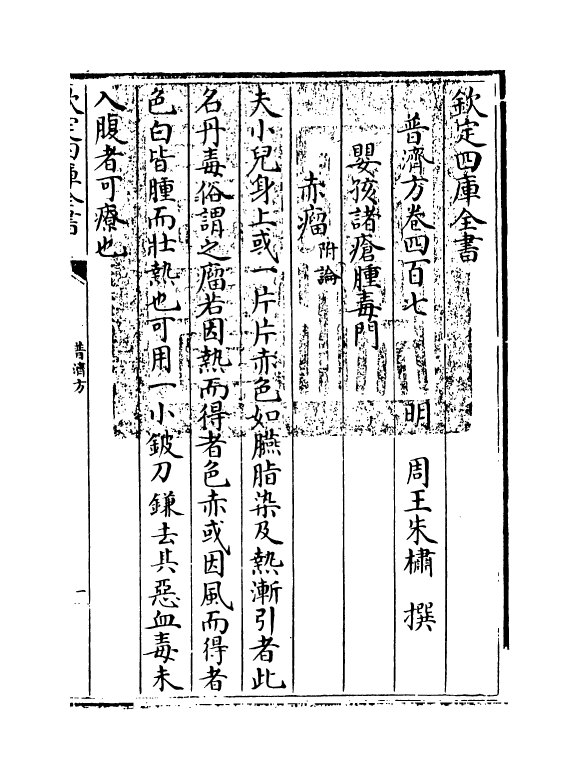 欽定四庫全書
普濟方卷四百七 明 周王朱橚 撰
嬰孩諸瘡腫毒門
赤瘤附論
夫小兒身上或一片片赤色如臙脂染及熱漸引者此
名丹毒俗謂之瘤若因熱而得者色赤或因風而得者
色白皆腫而壯熱也可用一小鈹刀鎌去其惡血毒未
入腹者可療也
欽定四庫全書
普濟方
一